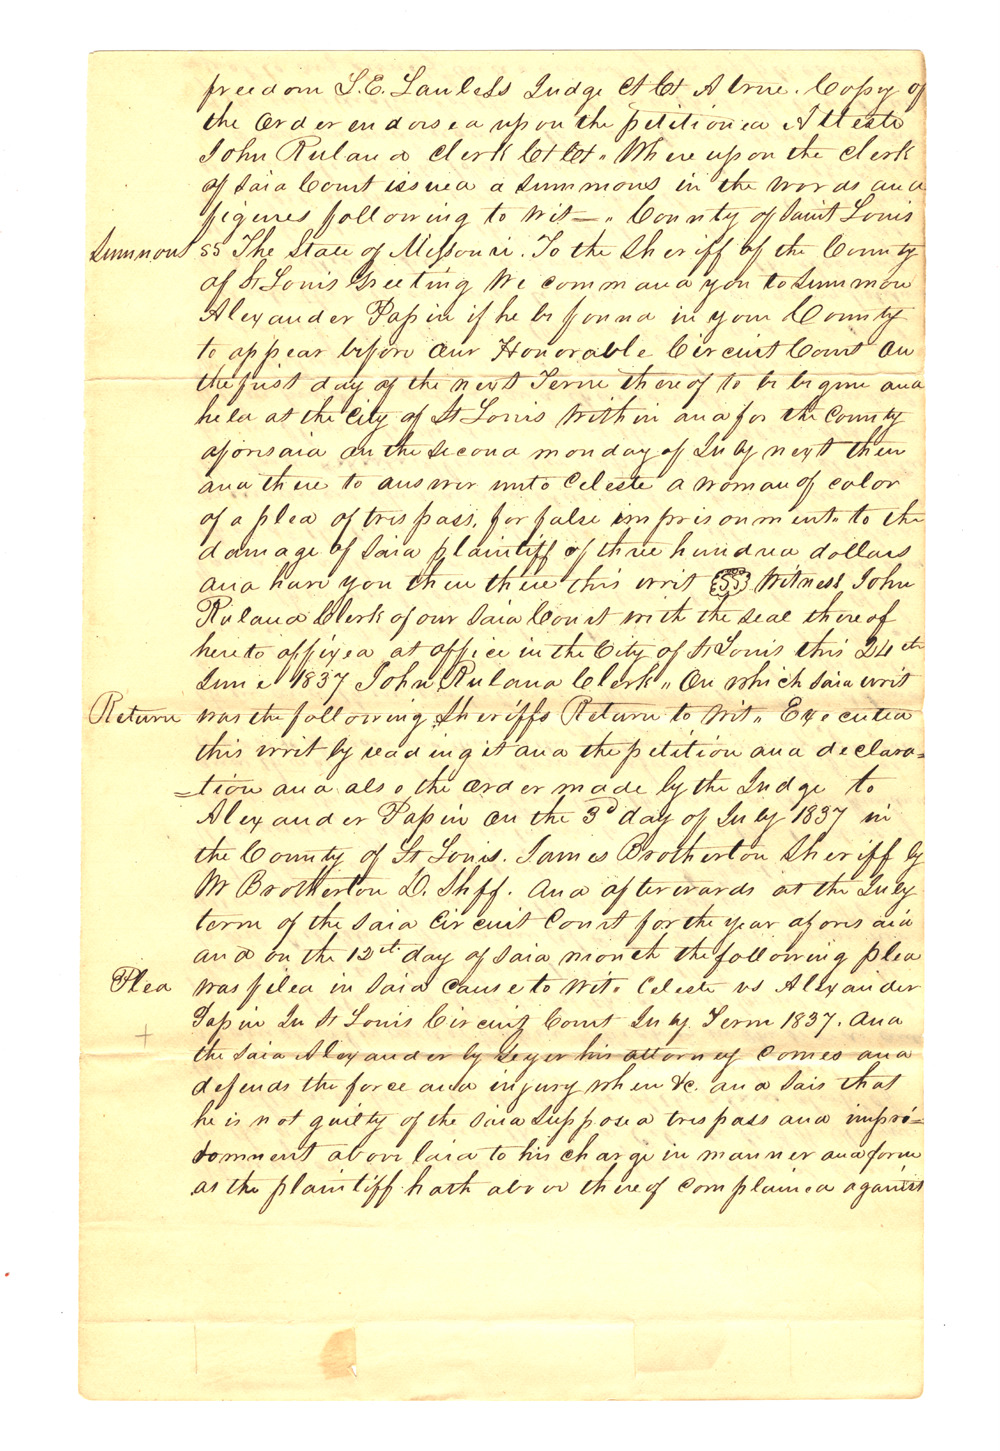 freedom L.E. Lawless Judge Ct Ct A true. Copy of
the Order endorsed upon the petition ed Atteste
John Ruland Clerk Ct Ct " Whereupon the Clerk
of said Court issued a summons in the words and
figures following to wit — " County of Saint Louis
Summons ss The State of Missouri. To the Sheriff of the County
of St Louis Greeting We command you to Summon
Alexander Papin if he be found in your County
to appear before our Honorable Circuit Court on
the first day of the next Term thereof to be begun and
held at the City of St Louis within and for the County
aforesaid on the second monday of July next then
and there to answer unto Celeste a woman of color
of a plea of trespass, for false imprisonment " to the
damage of said plaintiff of three hundred dollars
and have you then there this writ SS Witness John
Ruland Clerk of our said Court with the seal thereof
hereto affixed at office in the City of St Louis this 24th
June 1837 John Ruland Clerk " On which said writ
Return was the following Sheriffs Return to wit " Executed
this writ by reading it and the petition and declara=
=tion and also the order made by the Judge to
Alexander Papin on the 3d day of July 1837 in
the County of St Louis. James Brotherton Sheriff by
W Brotherton D. Shff. And afterwards at the July
term of the said Circuit Court for the year aforesaid
and on the 12th day of said month the following plea
Plea was filed in said cause to wit " Celeste vs Alexander
Papin In St Louis Circuit Court July Term 1837. And
the said Alexander by Geyer his attorney comes and
defends the force and injury when &c. and sais that
he is not guilty of the said supposed trespass and impri=
sonment above laid to his charge in manner and form
as the plaintiff hath above thereof complained against